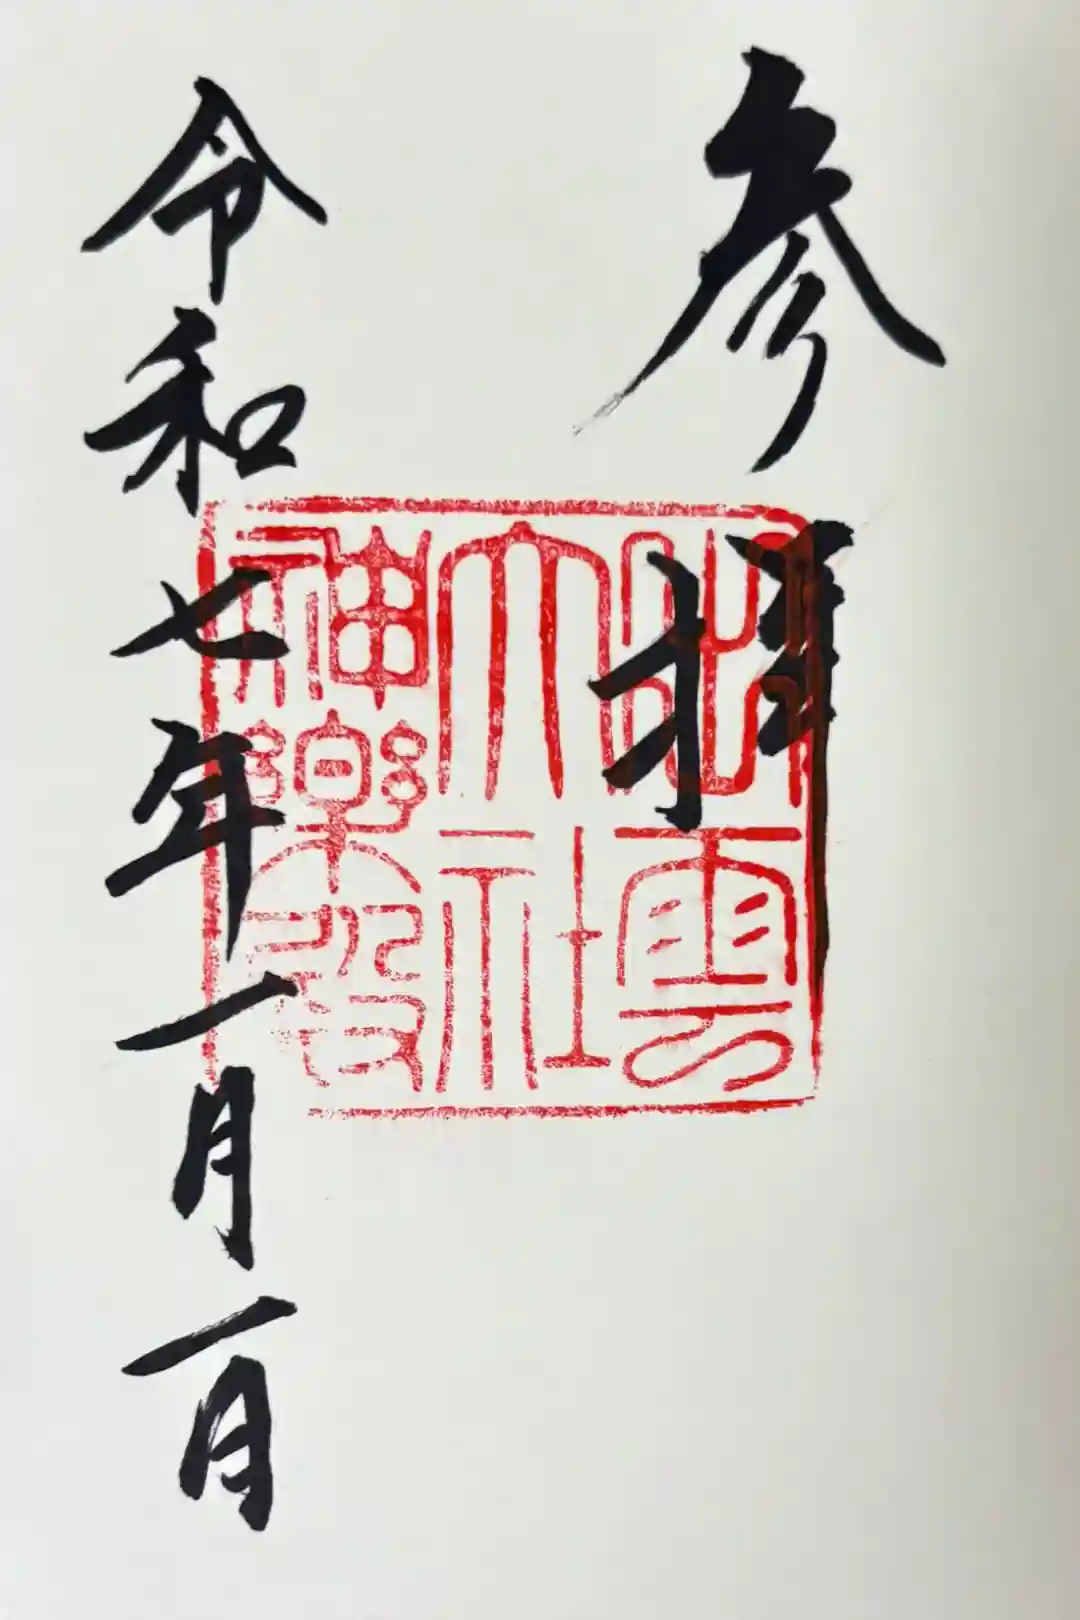 参拝
出雲
大社
神楽殿
令和七年一月一日